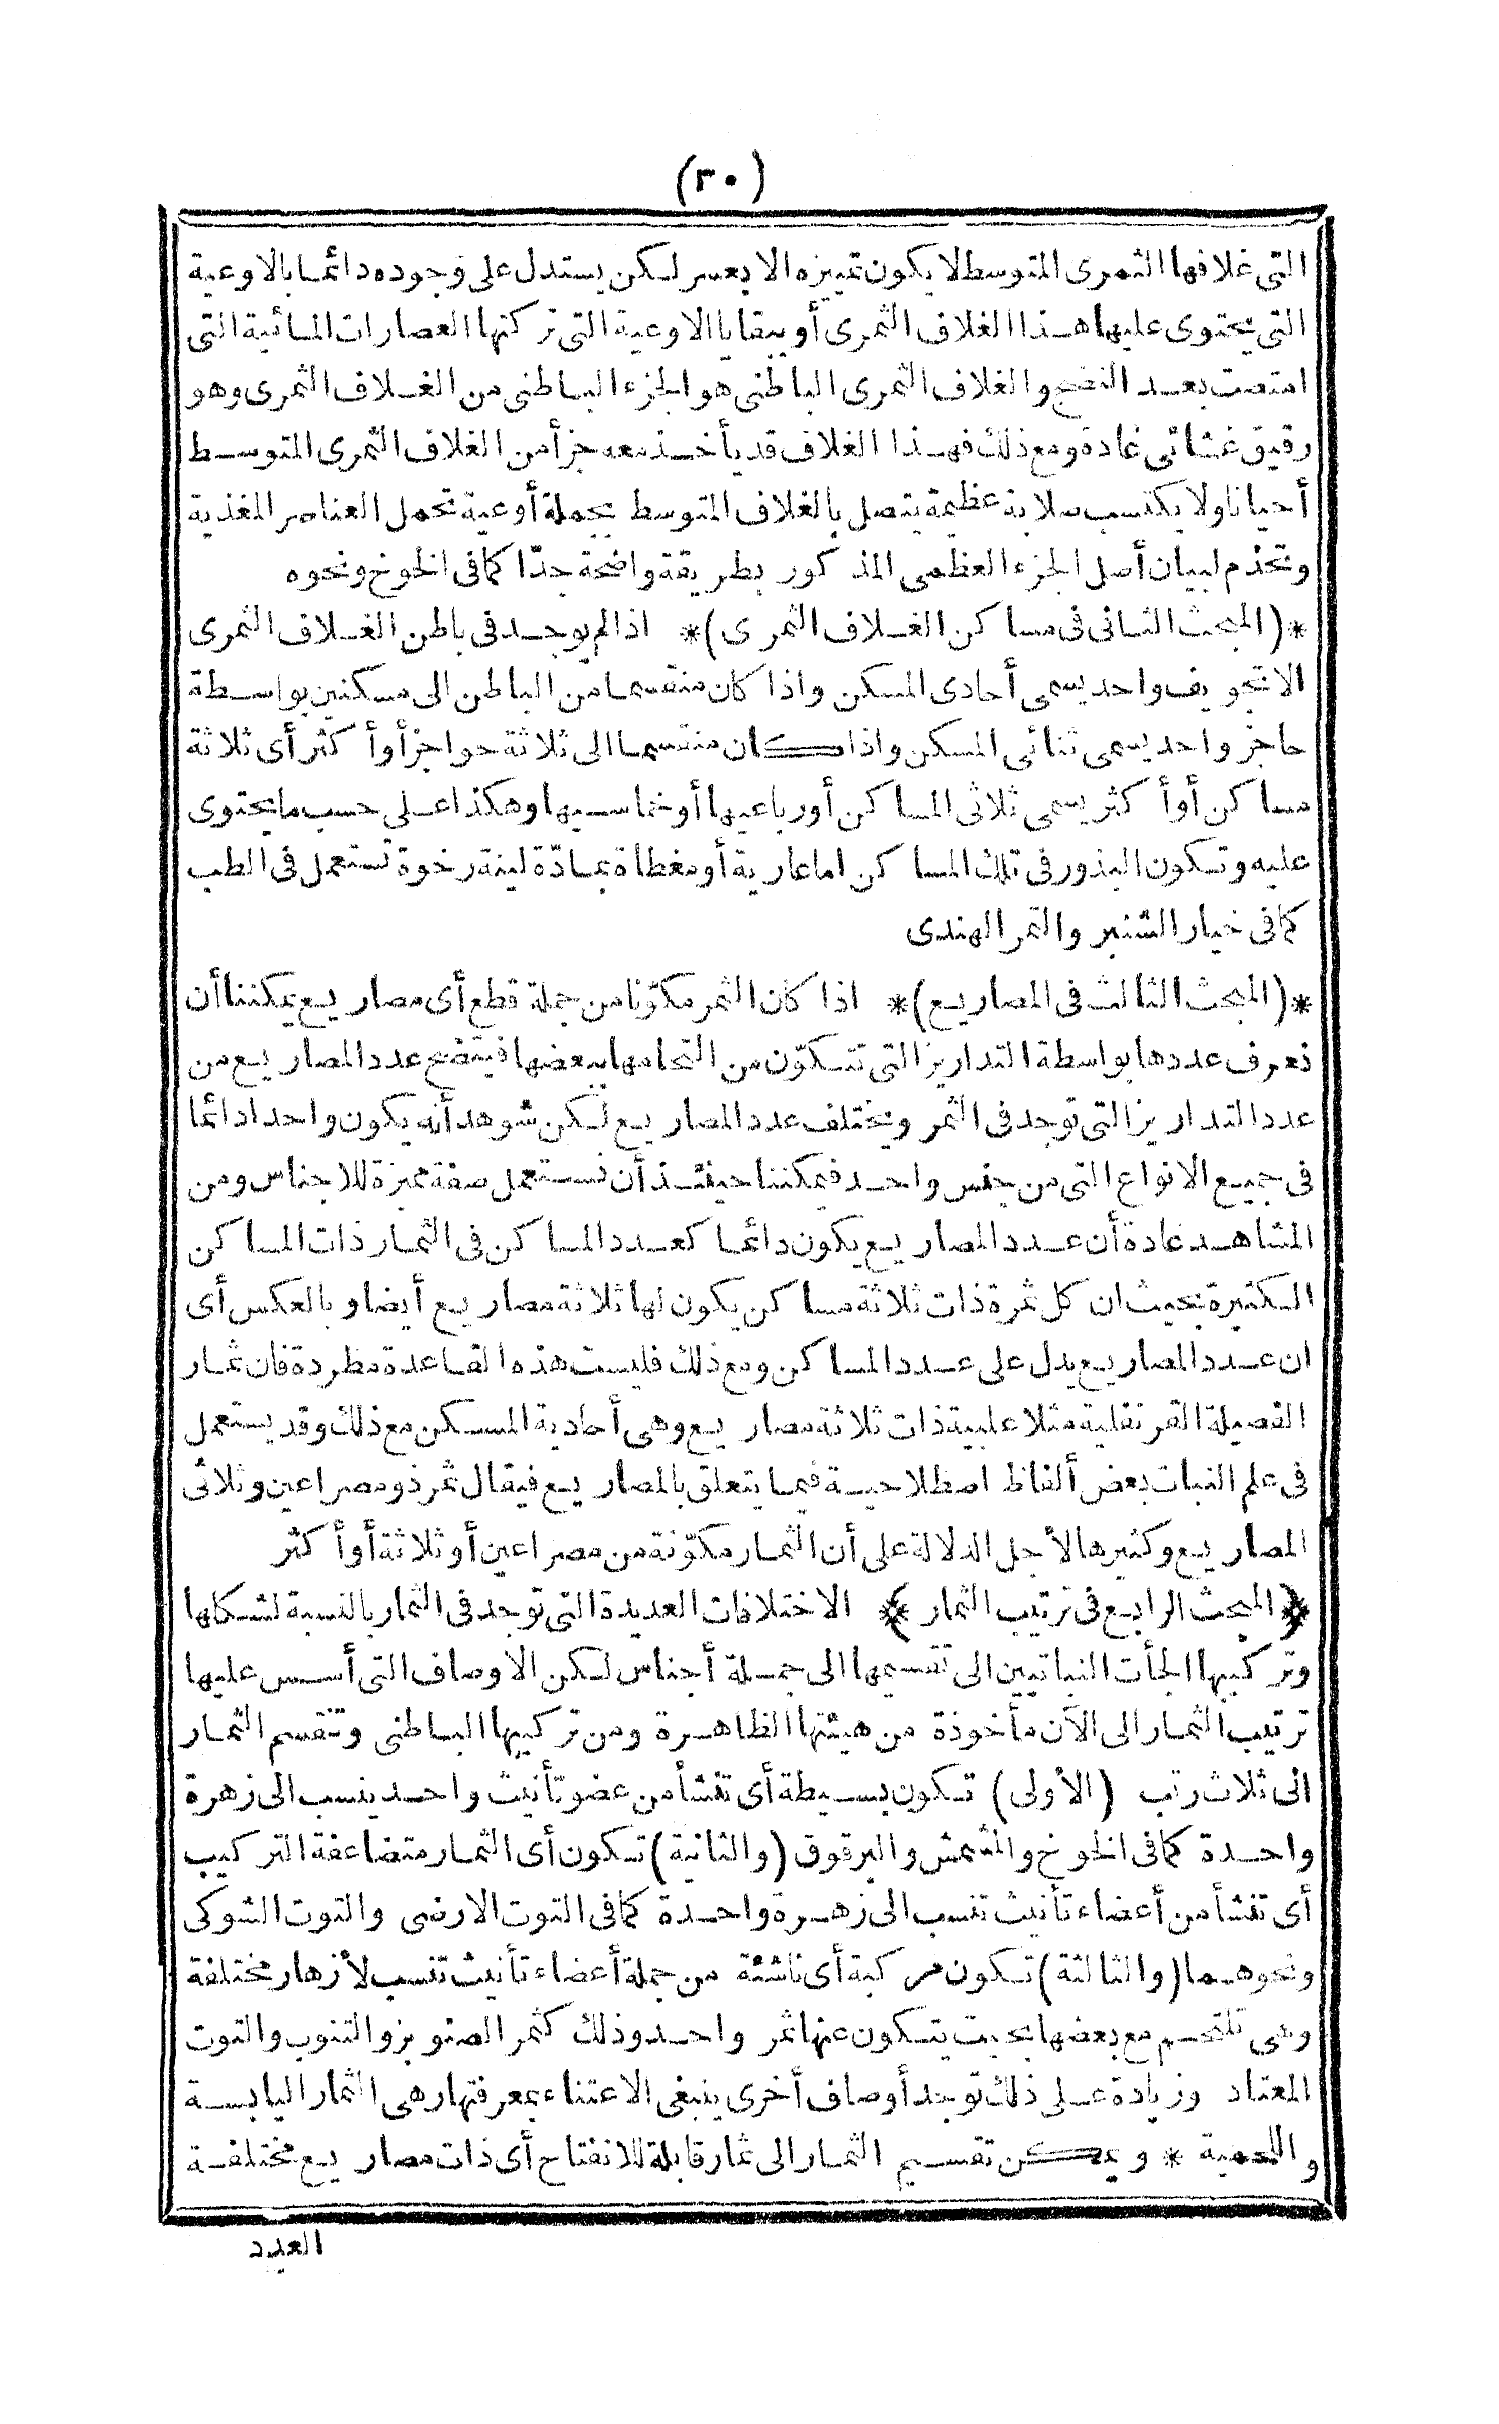 (٣٠)
التى غلافها الثمرى المتوسط لا يكون تمييزه الا بعسر لكن يستدل على وجوده دائما بالاوعية
التى يحتوى عليها هذا الغلاف الثمرى أو ببقايا الاوعية التى تركتها العصارات المائية التى
امتصت بعد النضج والغلاف الثمرى الباطنى هو الجزء الباطنى من الغلاف الثمرى وهو
رقيق غشائى عادة ومع ذلك فهذا الغلاف قد يأخذ معه جزأ من الغلاف الثمرى المتوسط
أحيانا ولا يكتسب صلابة عظيمة يتصل بالغلاف المتوسط بجملة أوعية تحمل العناصر المغذية
وتخدم لبيان أصل الجزء العظمى المذكور بطريقة واضحة جدّا كما فى الخوخ ونحوه
*(المبحث الثانى فى مساكن الغلاف الثمرى)* اذا لم يوجد فى باطن الغلاف الثمرى
الا تجويف واحد يسمى أحادى المسكن واذا كان منقسما من الباطن الى مسكنين بواسطة
حاجز واحد يسمى ثنائى المسكن واذا كان منقسما الى ثلاثة حواجز أو أكثر أى ثلاثة
مساكن أو أكثر يسمى ثلاثى المساكن أو رباعيها أو خماسيها وهكذا على حسب ما يحتوى
عليه وتكون البذور فى تلك المساكن اما عارية أو مغطاة بمادّة لينة رخوة تستعمل فى الطب
كما فى خيار الشنبر والتمر الهندى
*(المبحث الثالث فى المصاريع)* اذا كان الثمر مكوّنا من جملة قطع أى مصاريع يمكننا أن
نعرف عددها بواسطة التداريز التى تتكوّن من التحامها ببعضها فيتضح عدد المصاريع من
عدد التداريز التى توجد فى الثمر ويختلف عدد المصاريع لكن شوهد أنه يكون واحدا دائما
فى جميع الانواع التى من جنس واحد فيمكننا حينئذ أن نستعمل صفة مميزة للاجناس ومن
المشاهد عادة أن عدد المصاريع يكون دائما كعدد المساكن فى الثمار ذات المساكن
الكثيرة بحيث ان كل ثمرة ذات ثلاثة مساكن يكون لها ثلاثة مصاريع أيضا وبالعكس أى
ان عدد المصاريع يدل على عدد المساكن ومع ذلك فليست هذه القاعدة مطردة فان ثمار
الفصيلة القرنفلية مثلا علبية ذات ثلاثة مصاريع وهى أحادية المسكن مع ذلك وقد يستعمل
فى علم النبات بعض ألفاظ اصطلاحية فيما يتعلق بالمصاريع فيقال ثمر ذو مصراعين وثلاثى
المصاريع وكثيرها لأجل الدلالة على أن الثمار مكوّنة من مصراعين أو ثلاثة أو أكثر
*(المبحث الرابع فى ترتيب الثمار)* الاختلافات العديدة التى توجد فى الثمار بالنسبة لشكلها
وتركيبها الجأت النباتيين الى تقسيمها الى جملة أجناس لكن الاوصاف التى أسس عليها
ترتيب الثمار الى الآن مأخوذة من هيئتها الظاهرة ومن تركيبها الباطنى وتنقسم الثمار
الى ثلاث رتب (الأولى) تكون بسيطة أى تنشأ من عضو تأنيث واحد ينسب الى زهرة
واحدة كما فى الخوخ والمشمش والبرقوق (والثانية) تكون أى الثمار متضاعفة التركيب
أى تنشأ من أعضاء تأنيث تنسب الى زهرة واحدة كما فى التوت الارضى والتوت الشوكى
ونحوهما (والثالثة) تكون مركبة أى ناشئة من جملة أعضاء تأنيث تنسب لأزهار مختلفة
وهى تلتحم مع بعضها بحيث يتكون عنها ثمر واحد وذلك كثمر الصنوبر والتنوب والتوت
المعتاد وزيادة على ذلك توجد أوصاف أخرى ينبغى الاعتناء بمعرفتها وهى الثمار اليابسة
واللحمية * ويمكن تقسيم الثمار الى ثمار قابلة للانفتاح أى ذات مصاريع مختلفة
العدد